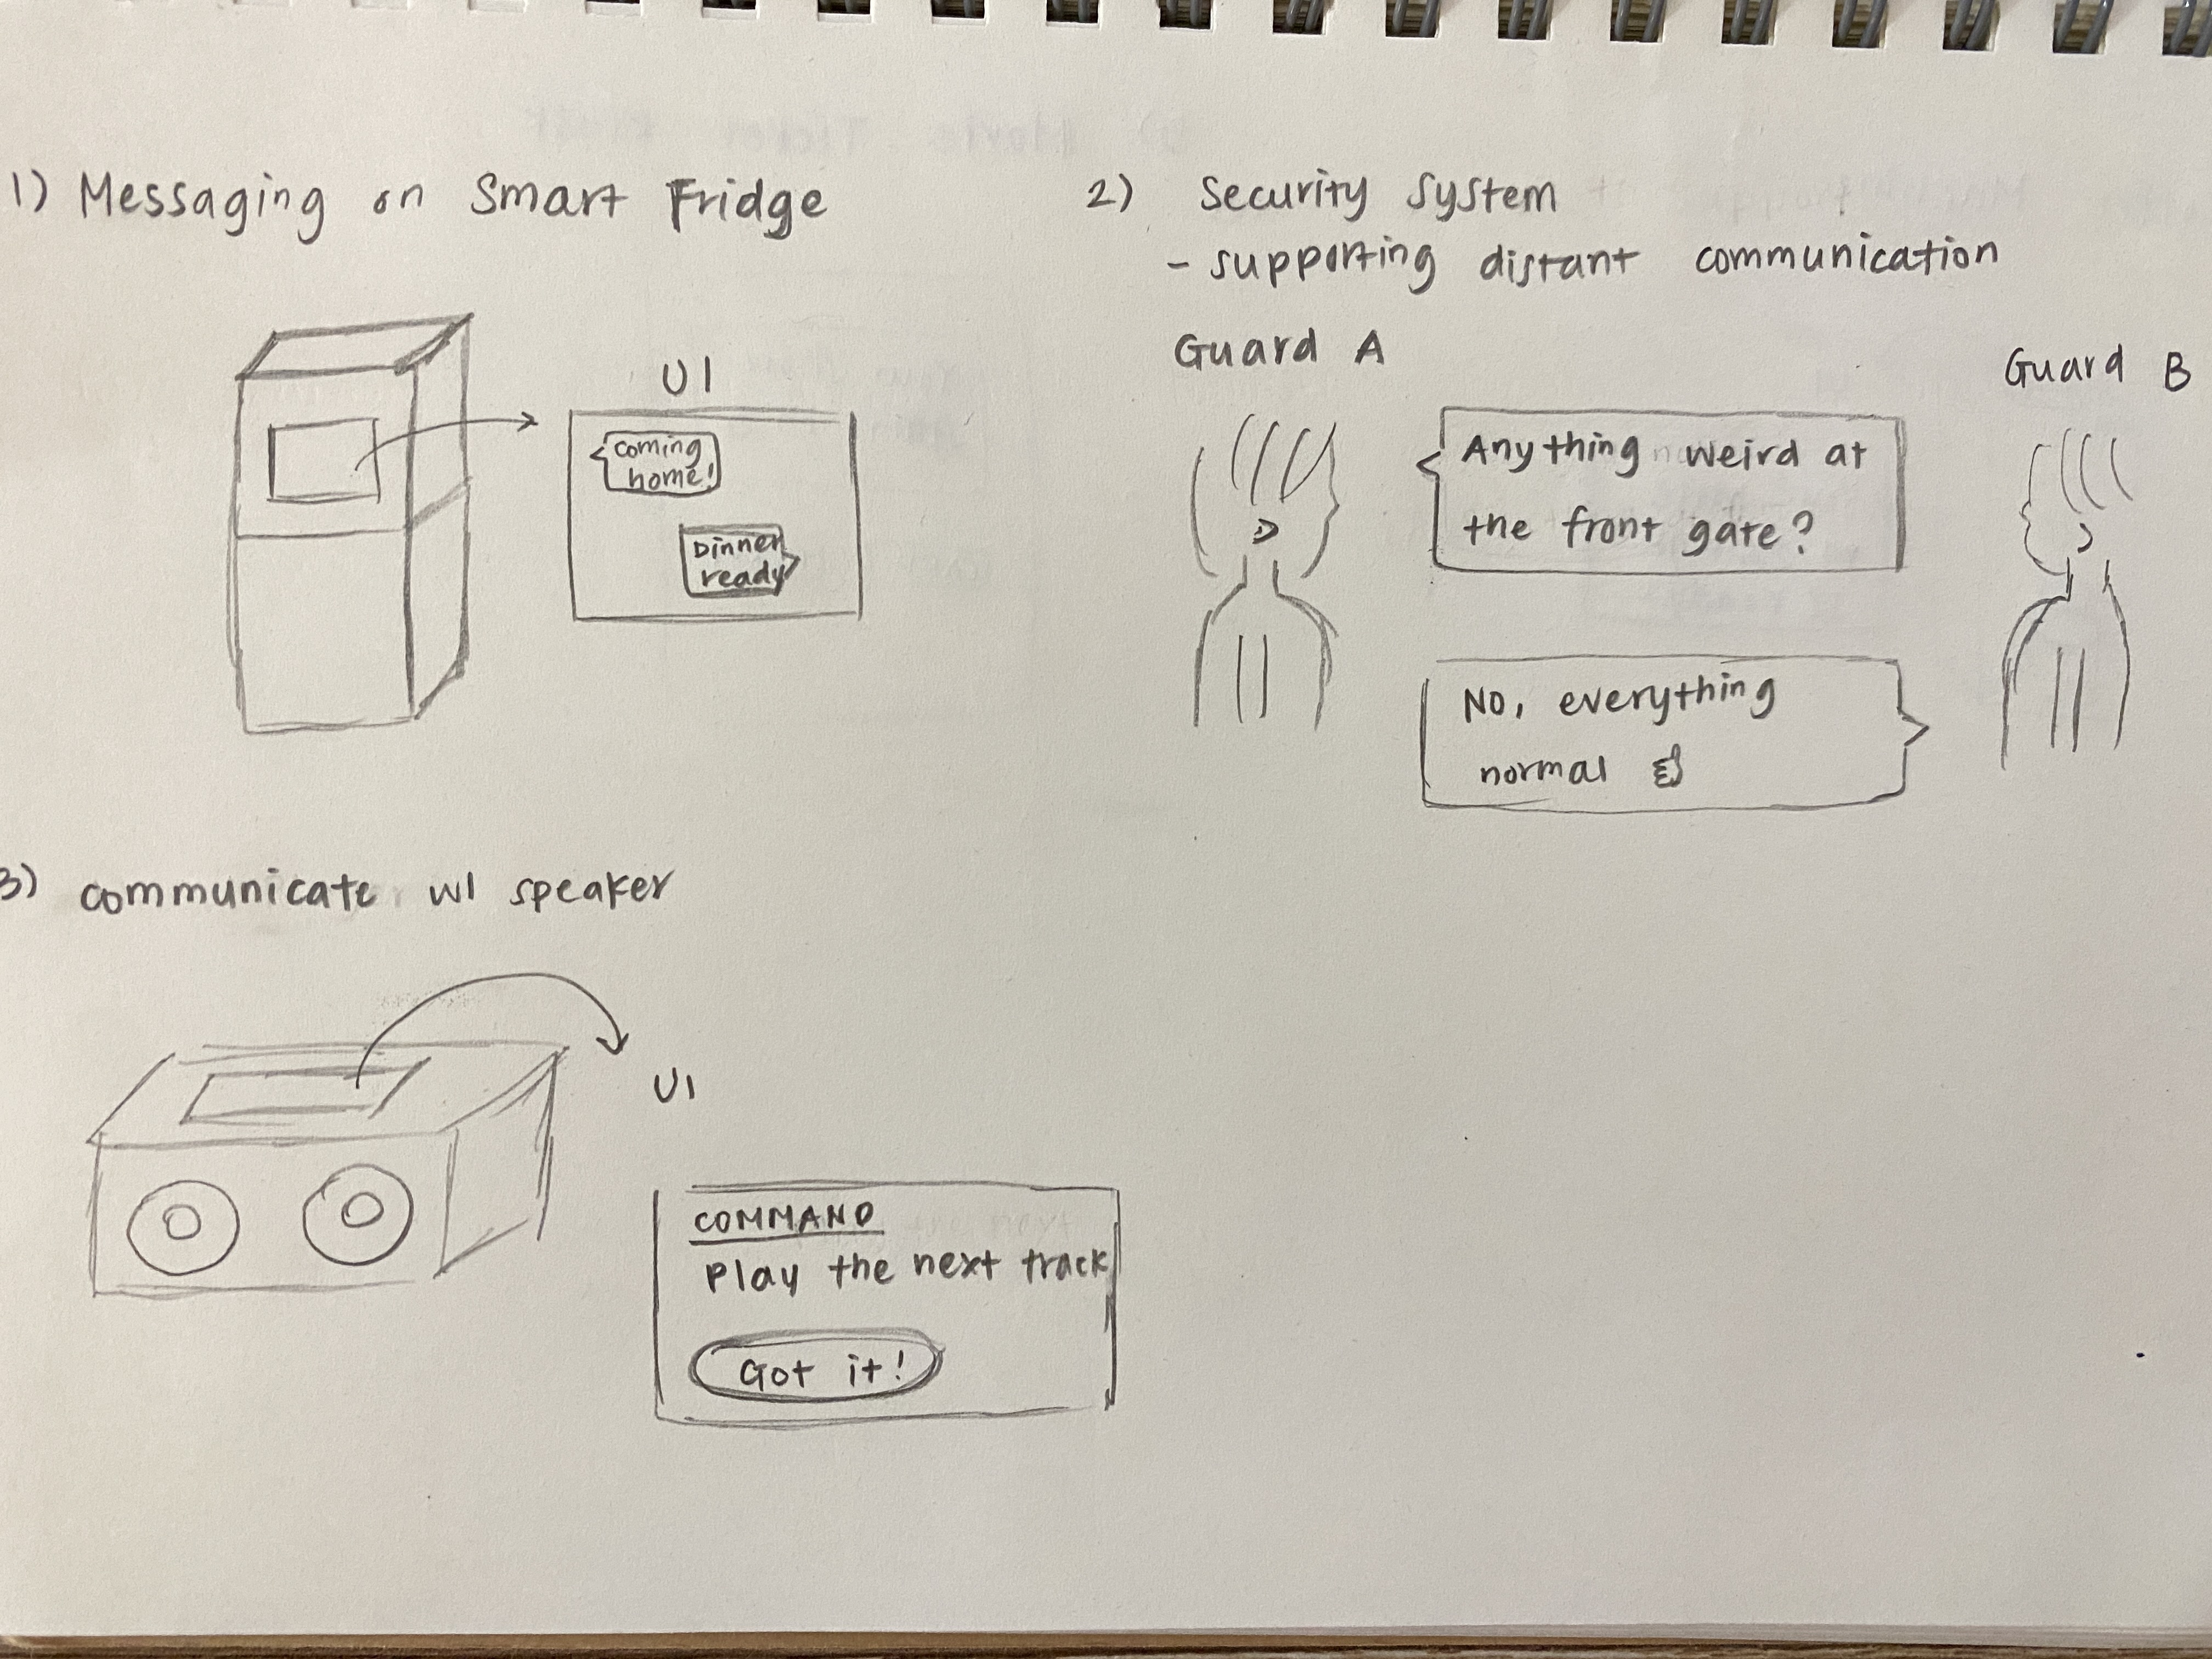 1) Messaging on Smart Fridge
UI
coming
home!
Dinner
ready
2) Security System
- supporting distant communication
Guard A
Guard B
Anything weird at
the front gate?
No, everything
normal
3) communicate w/ speaker
UI
COMMAND
Play the next track
Got it!